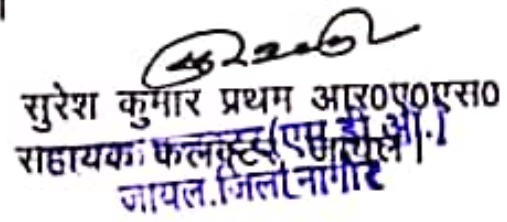 सुरेश कुमार प्रथम आर०ए०एस०
सहायक कलक्टर (एस.डी.ओ.)
जायल.जिला नागौर